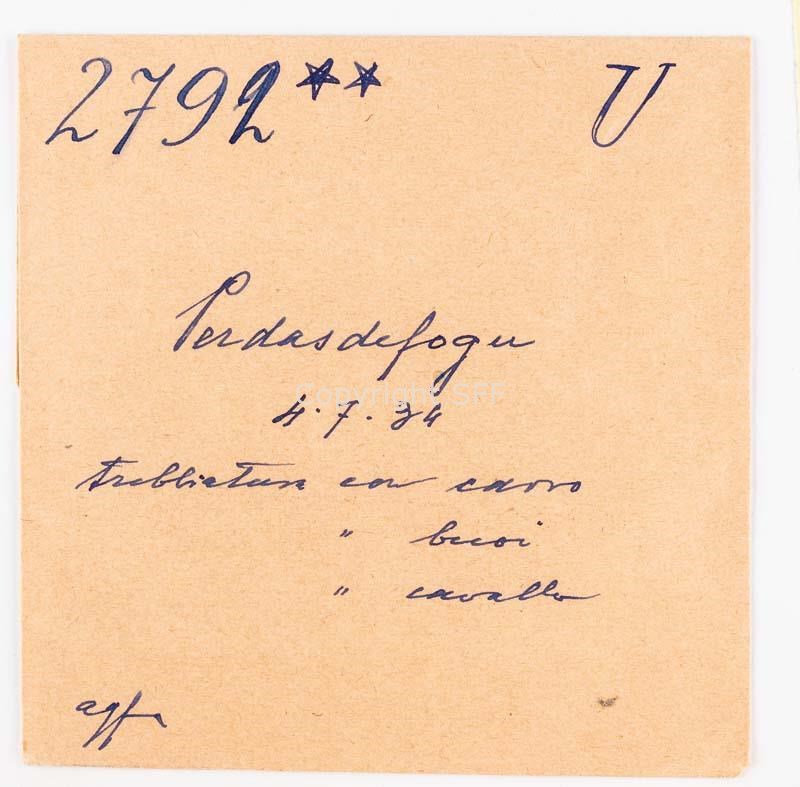 2792** U
Perdasdefogu
Copyright SFF
4.7.34
trebbiatura con carro
" buoi
" cavallo
agfa